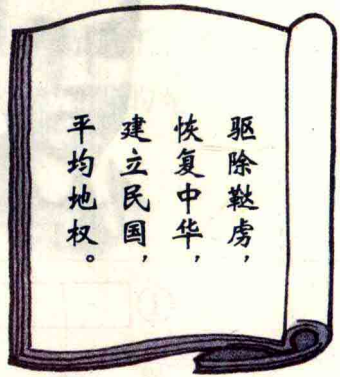 驱除鞑虏，
恢复中华，
建立民国，
平均地权。